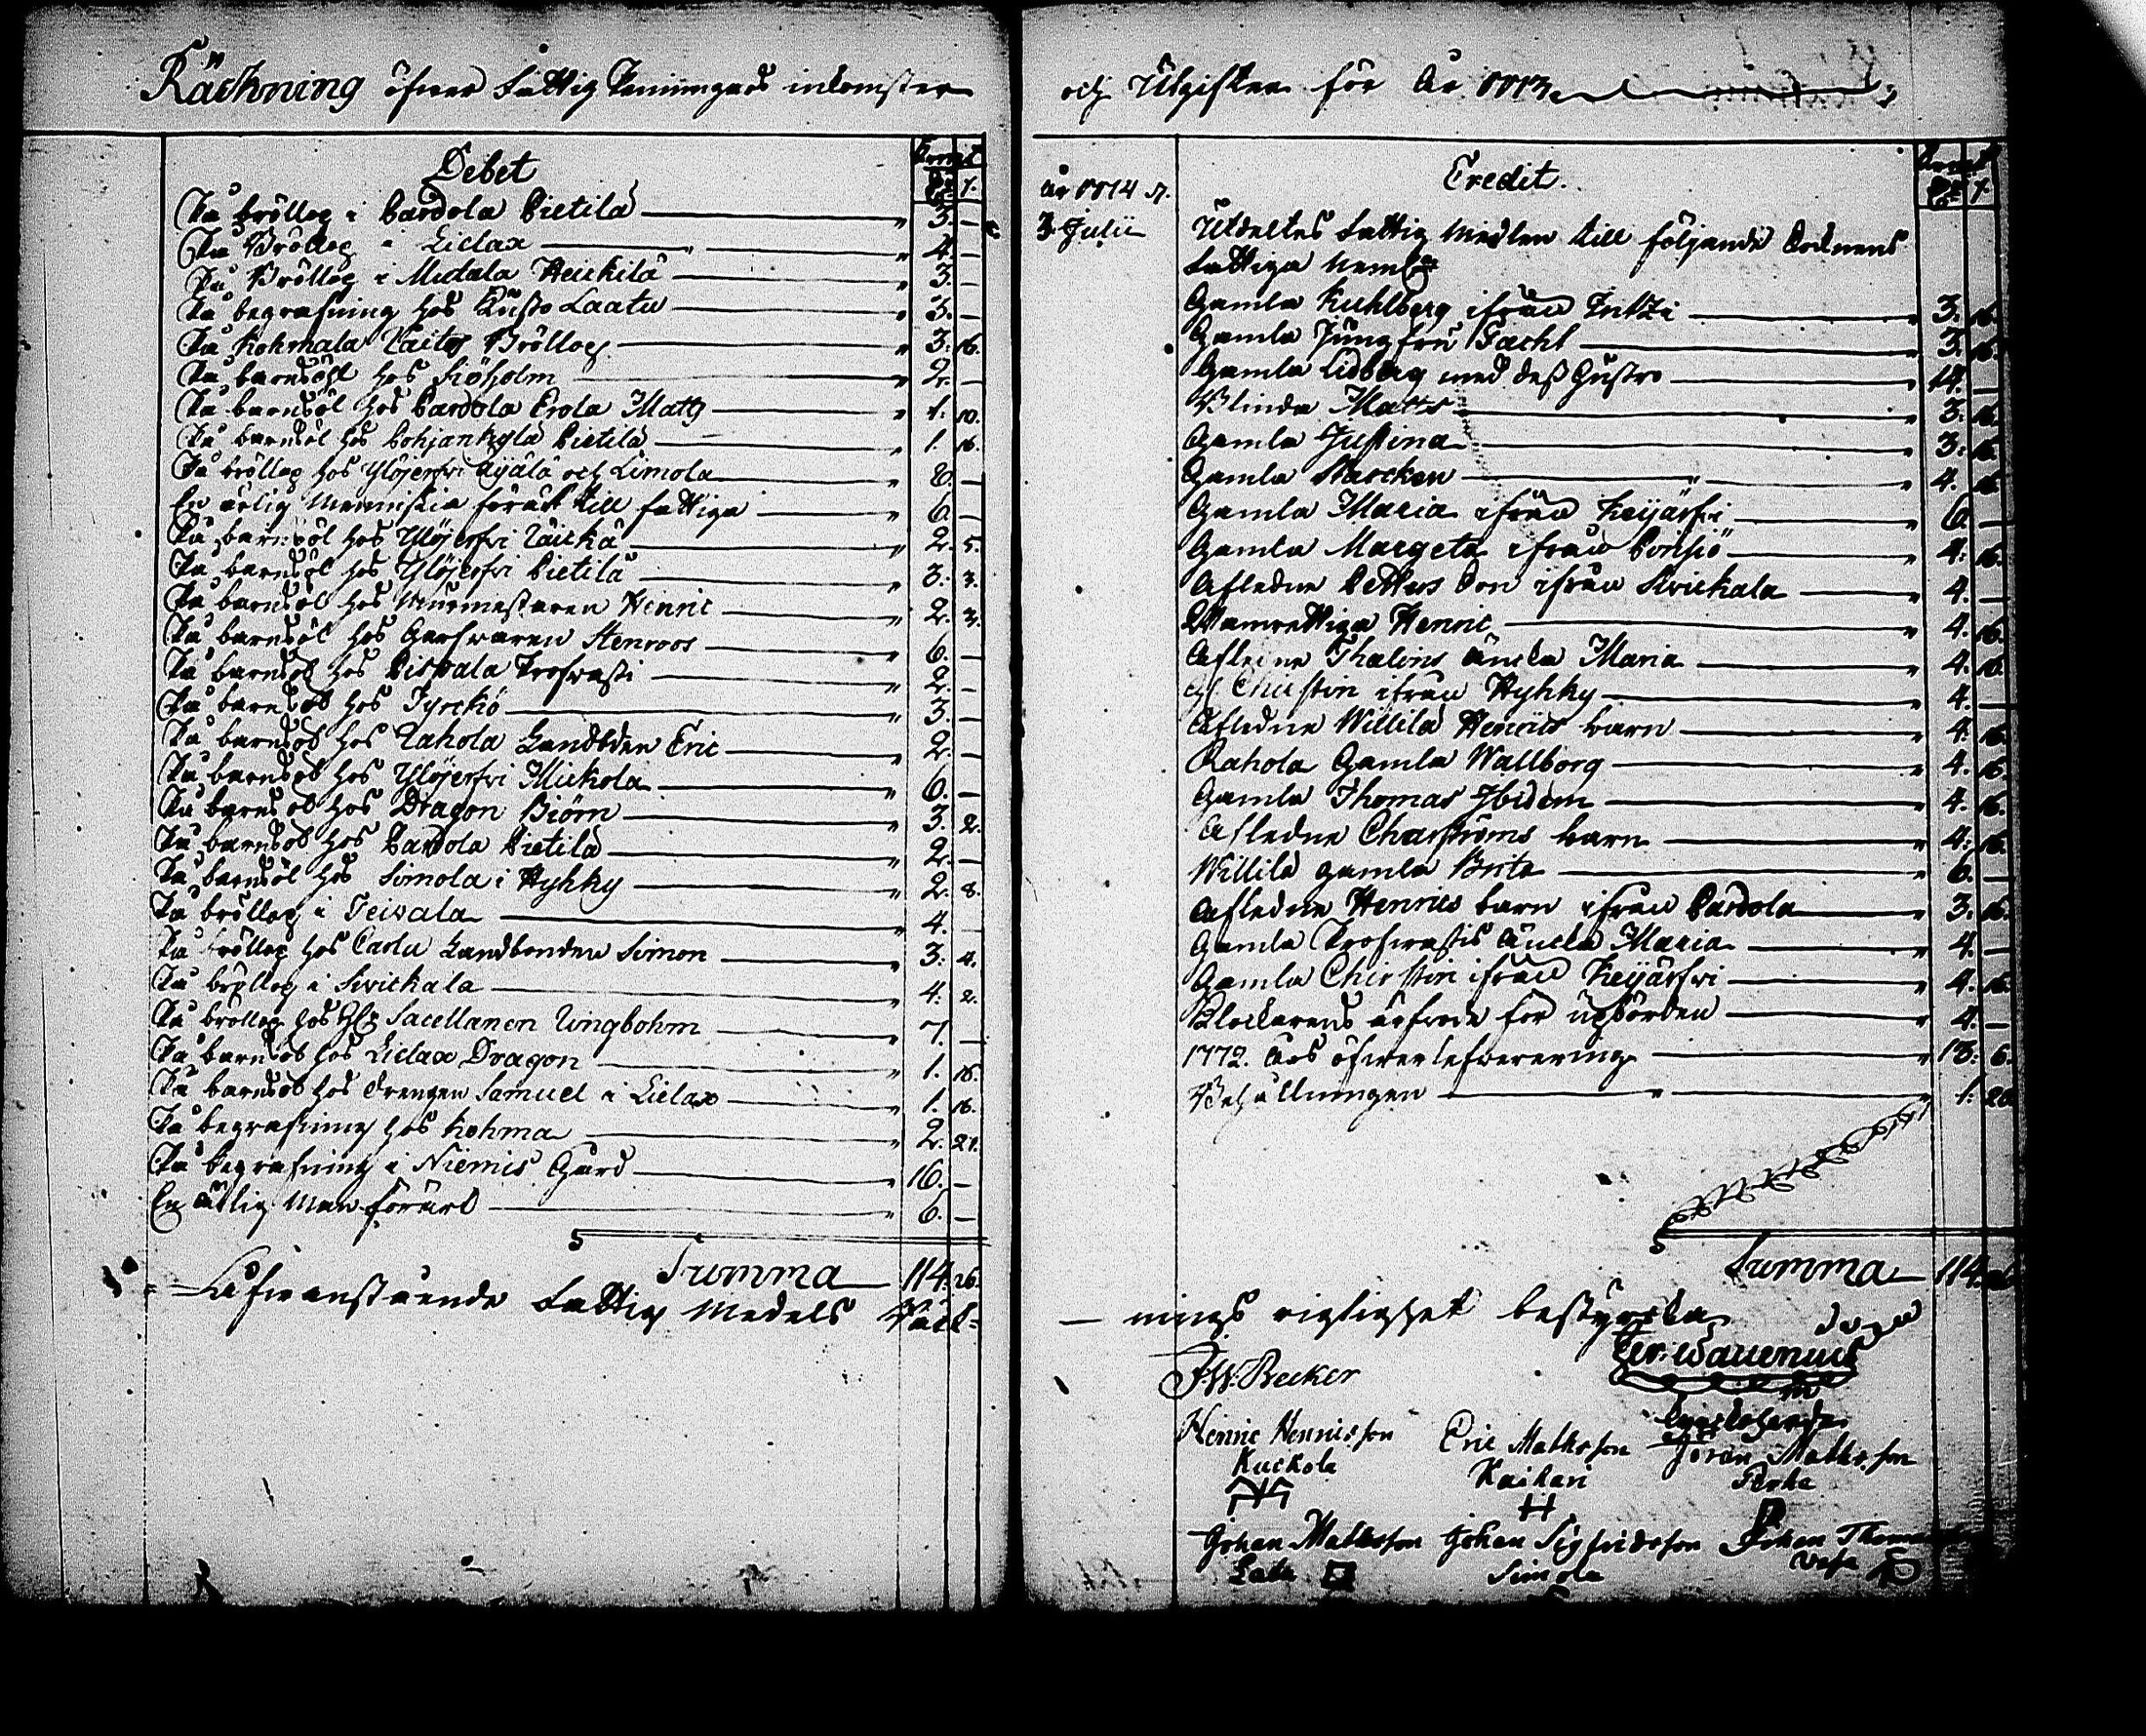 Räckning öfwer Fattig Penningars inkomster
Debet
På bröllop i Pardola Pietilä 3. —
På Bröllop i Lielax 4. —
På Bröllop i Mickala Heickilä 3. —
På begrafning hos Kusto Laatu 3. —
På Kohmala Bröllop 3. 16.
På barnsöhl hos Siöholm 2. —
På barnsöl hos Pardola Erola Matts 1. 10.
På barnsöl hos Pohjankylä Pietilä 1. 16.
På bröllop hos Ylöjerfvi Äijälä och Simola 8. —
En ärlig Menniskia förärt till fattiga 6. —
På barnsöl hos Ylöjerfvi Räickä 2. 5.
På barnsöl hos Ylöjerfvi Pietilä 3. 3.
På barnsöl hos Murmestaren Henric 2. 3.
På barnsöl hos Garfwaren Stenroos 6. —
På barnsöl hos Pispala Profwasti 2. —
På barnsöl hos Tyrckö 3. —
På barnsöl hos Rahola Landbden Eric 2. —
På barnsöl hos Ylöjerfvi Mickola 6. —
På barnsöl hos Dragon Biörn 3. 2.
På barnsöl hos Pardola Pietilä 2. —
På barnsöl hos Simola i Hyhky 2. 8.
På bröllop i Teivala 4. —
På bröllop hos Carlu Landbonden Simon 3. 4.
På bröllop i Sivickala 4. 2.
På bröllop hos Sacellanen Ungbohm 7. —
På barnsöl hos Lielax Dragon 1. 16.
På barnsöl hos drengen Samuel i Lielax 1. 16.
På begrafning hos Kohma 2. 21.
På begrafning i Niemis Gård 16. —
En ärlig Man förärt 6. —
Summa 114. 26.
Ofwanstående Fattig Medels Räck=
och Utgifter för År 1773
Credit
år 1774 d.
3 Julii
Utdeltes Fattig Medlen till följande Socknens
Fattiga neml:
Gamla Kuhlberg ifrån 3. 16.
Gamla Jungfru Facht 3. 16.
Gamla Lidberg med dess Hustru 14. —
Blinda Matts 3. 16.
Gamla Justina 3. 16.
Gamla Starcken 4. 16.
Gamla Maria ifrån Keijärfvi 6. —
Gamla Margeta ifrån Porsiö 4. 16.
Afledne Petters Son ifrån Sivickala 4. —
Wanwettiga Henric 4. 16.
Afledne Thalins Äncka Maria 4. 16.
Gl. Christin ifrån Hyhky 4. —
Afledne Willilä Henrics barn 4. 16.
Rahola Gamla Wallborg 4. 16.
Gamla Thomas Ibidem 4. 16.
Afledne Charströms barn 4. 16.
Willilä gamla Brita 6. —
Afledne Henrics barn ifrån Pardola 3. 16.
Gamla Profwastis Äncka Maria 4. —
Gamla Christin ifrån Keijärfvi 4. 16.
Klockarens arfwode för upbörden 4. —
1772. Års öfwerlefwerering 13. 6.
Behållningen 1. 20
Summa 114. 26
— nings rigtighet bestyrka
J.W. Becker
Henric Henricsson
Kuckola
Eric Mathsson
Kaikari
Jöran Mathsson
Perka
Johan Mathsson
Latu
Johan Sigfridsson
Simola
Johan Thom